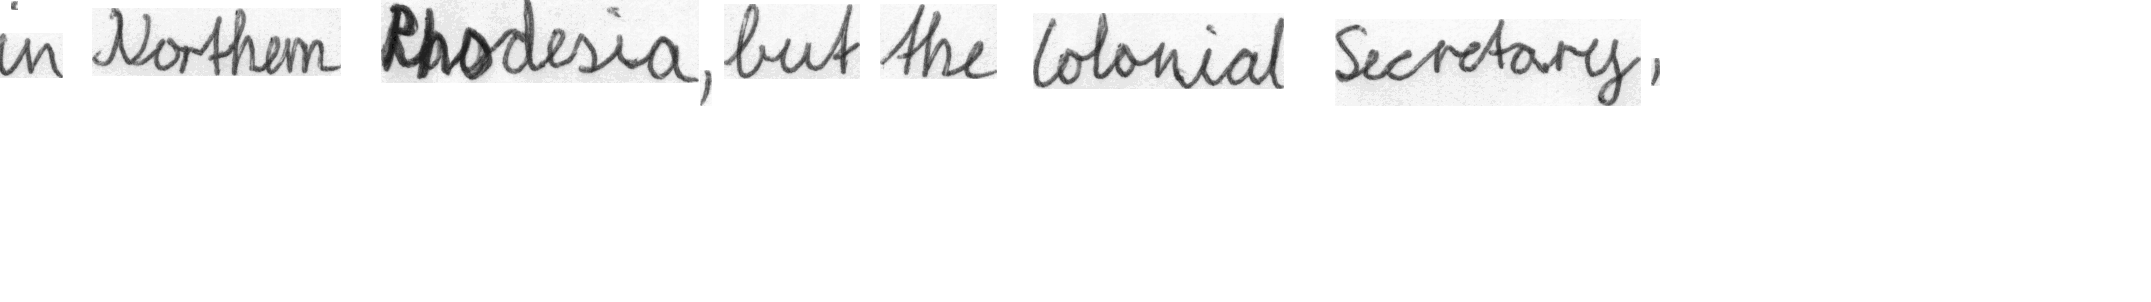 in Northern Rhodesia, but the Colonial Secretary,